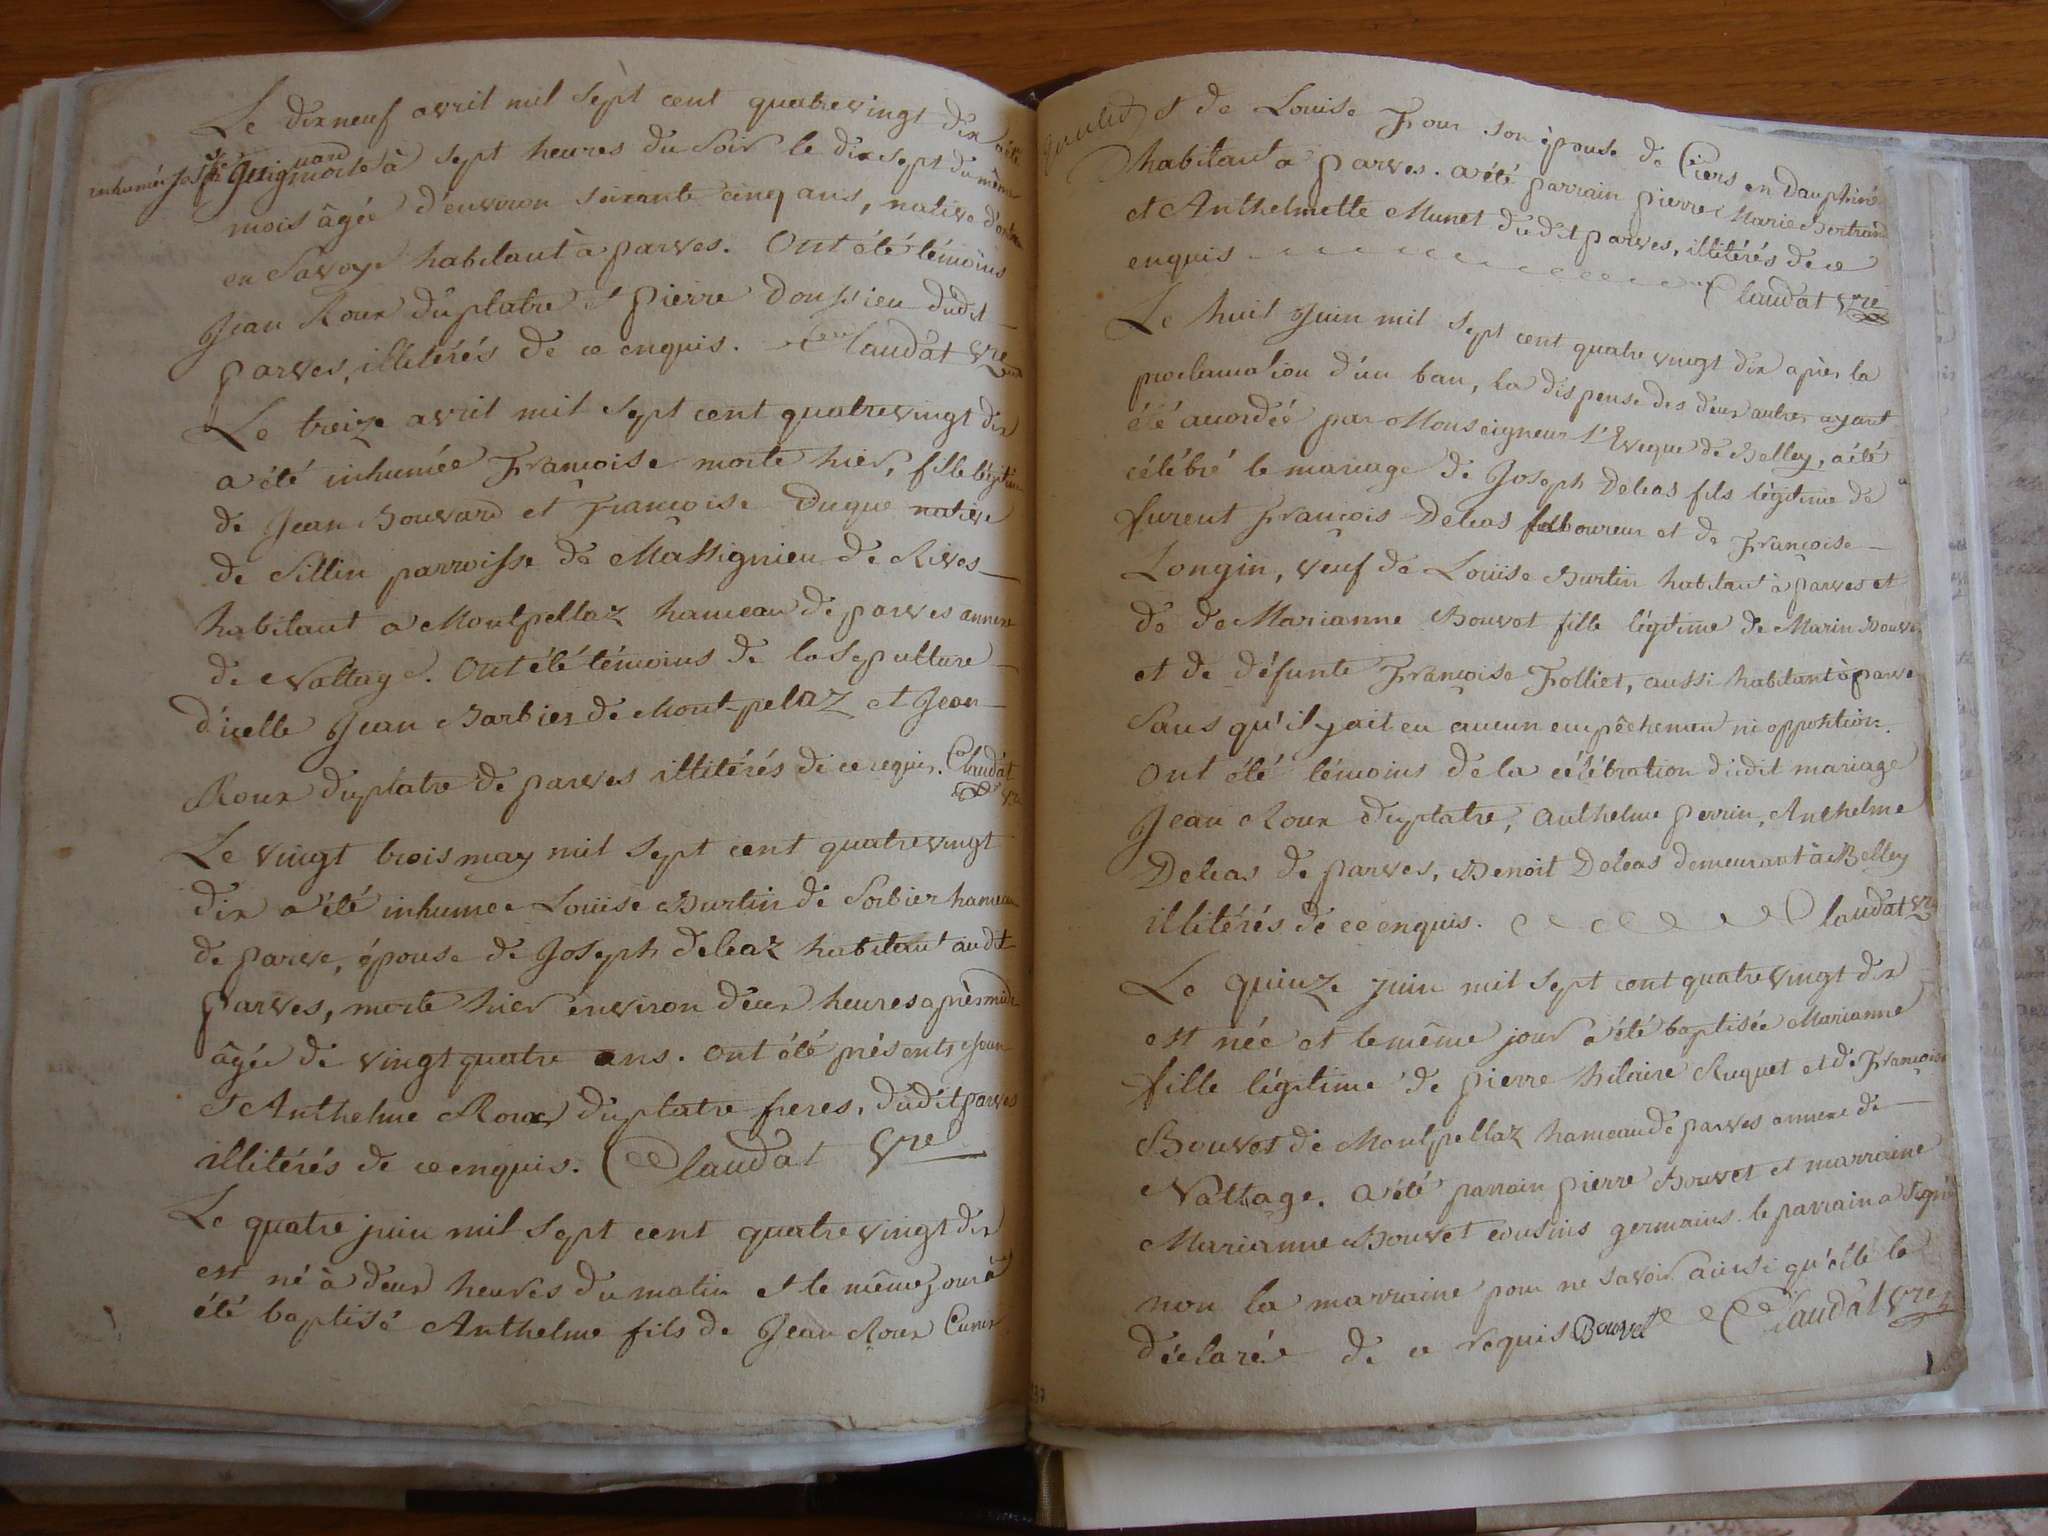 Le dix neuf avril mil sept cent quatrevingt dix a été
inhumée morte à sept heures du Soir le dix sept du même
mois âgée d'environ soixante cinq ans, native
en Savoye habitant à parves. Ont été témoins
Jean Roux duplatre et pierre Doussieu dudit
parves, illitérés de ce enquis. Claudat vre
Le treize avril mil sept cent quatrevingt dix
a été inhumée Françoise morte hier, fille légitime
de Jean Bouvard et Françoise Dugue native
de Sillin parroisse de Massignieu de Rives
habitant a Montpellaz hameau de parves annexe
de Nattage. Ont été témoins de la Sepulture
d'icelle Jean Barbier de Mont-pelaz et Jean
Roux duplatre de parves illitérés de ce requis. Claudat
vre
Le vingt trois may mil sept cent quatrevingt
dix a été inhumée Louise Burtin de Sorbier hameau
de parve, épouse de Joseph deleaz habitant audit
parves, morte hier environ deux heures après midi
âgée de vingt quatre ans. ont été présents Jean
et Anthelme Roux duplatre freres, dudit parves
illitérés de ce enquis. Claudat vre
Le quatre juin mil sept cent quatrevingt dix
est né à deux heures du matin et le même jour a
été baptisé Anthelme fils de Jean Roux
et de Louise son épouse de Ciers en Dauphiné
habitant a parves. a été parrain pierre Marie Bertrand
et Anthelmette Munet dudit parves, illitérés de ce
enquis Claudat vre
Le huit Juin mil sept cent quatre vingt dix après la
proclamation d'un ban, la dispense des deux autres ayant
été accordée par Monseigneur l'Eveque de Belley, a été
célébré le mariage de Joseph Deleas fils légitime de
furent François Deleas laboureur et de Françoise
Longin, veuf de Louise Burtin habitant à parves et
de de Marianne Bouvet fille légitime de Marin Bouvet
et de défunte Françoise Folliet, aussi habitant à parve
Sans qu'il y ait eu aucun empêchement ni opposition.
Ont été témoins de la célébration dudit mariage
Jean Roux duplatre, Anthelme perrin, Anthelme
Deleas de parves, Benoit Deleas demeurant à Belley
illitérés de ce enquis. Claudat vre
Le quinze juin mil sept cent quatre vingt dix
est née et le même jour a été baptisée Marianne
fille légitime de pierre hilaire Ruquet et de Françoise
Bouvet de Montpellaz hameau de parves annexe de
Nattage. a été parrain pierre Bouvet et marraine
Marianne Bouvet cousins germains. le parrain a signé
non la marraine pour ne savoir ainsi qu'elle le
déclarée de ce requis Bouvet Claudat vre